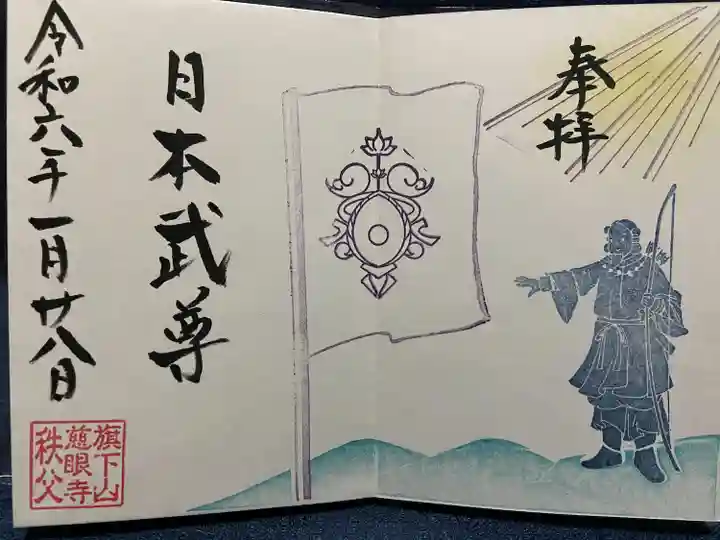 奉拝
日本武尊
令和六年一月廿八日
旗下山
慈眼寺
秩父